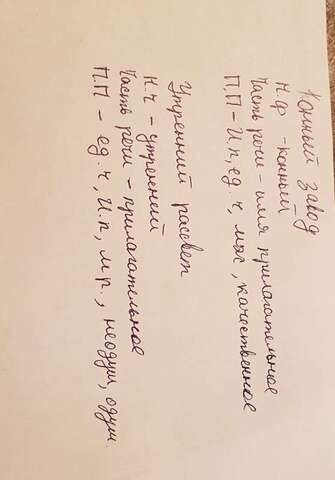 Конный завод
Н.Ф - конный
Часть речи - имя прилагательное
П.П - И.п, ед. ч, муж, качественное
Утренний расвет
Н.Ч - утренний
Часть речи - прилагательное
П.П - ед. ч, И.п, м.р., неодуш, одуш.